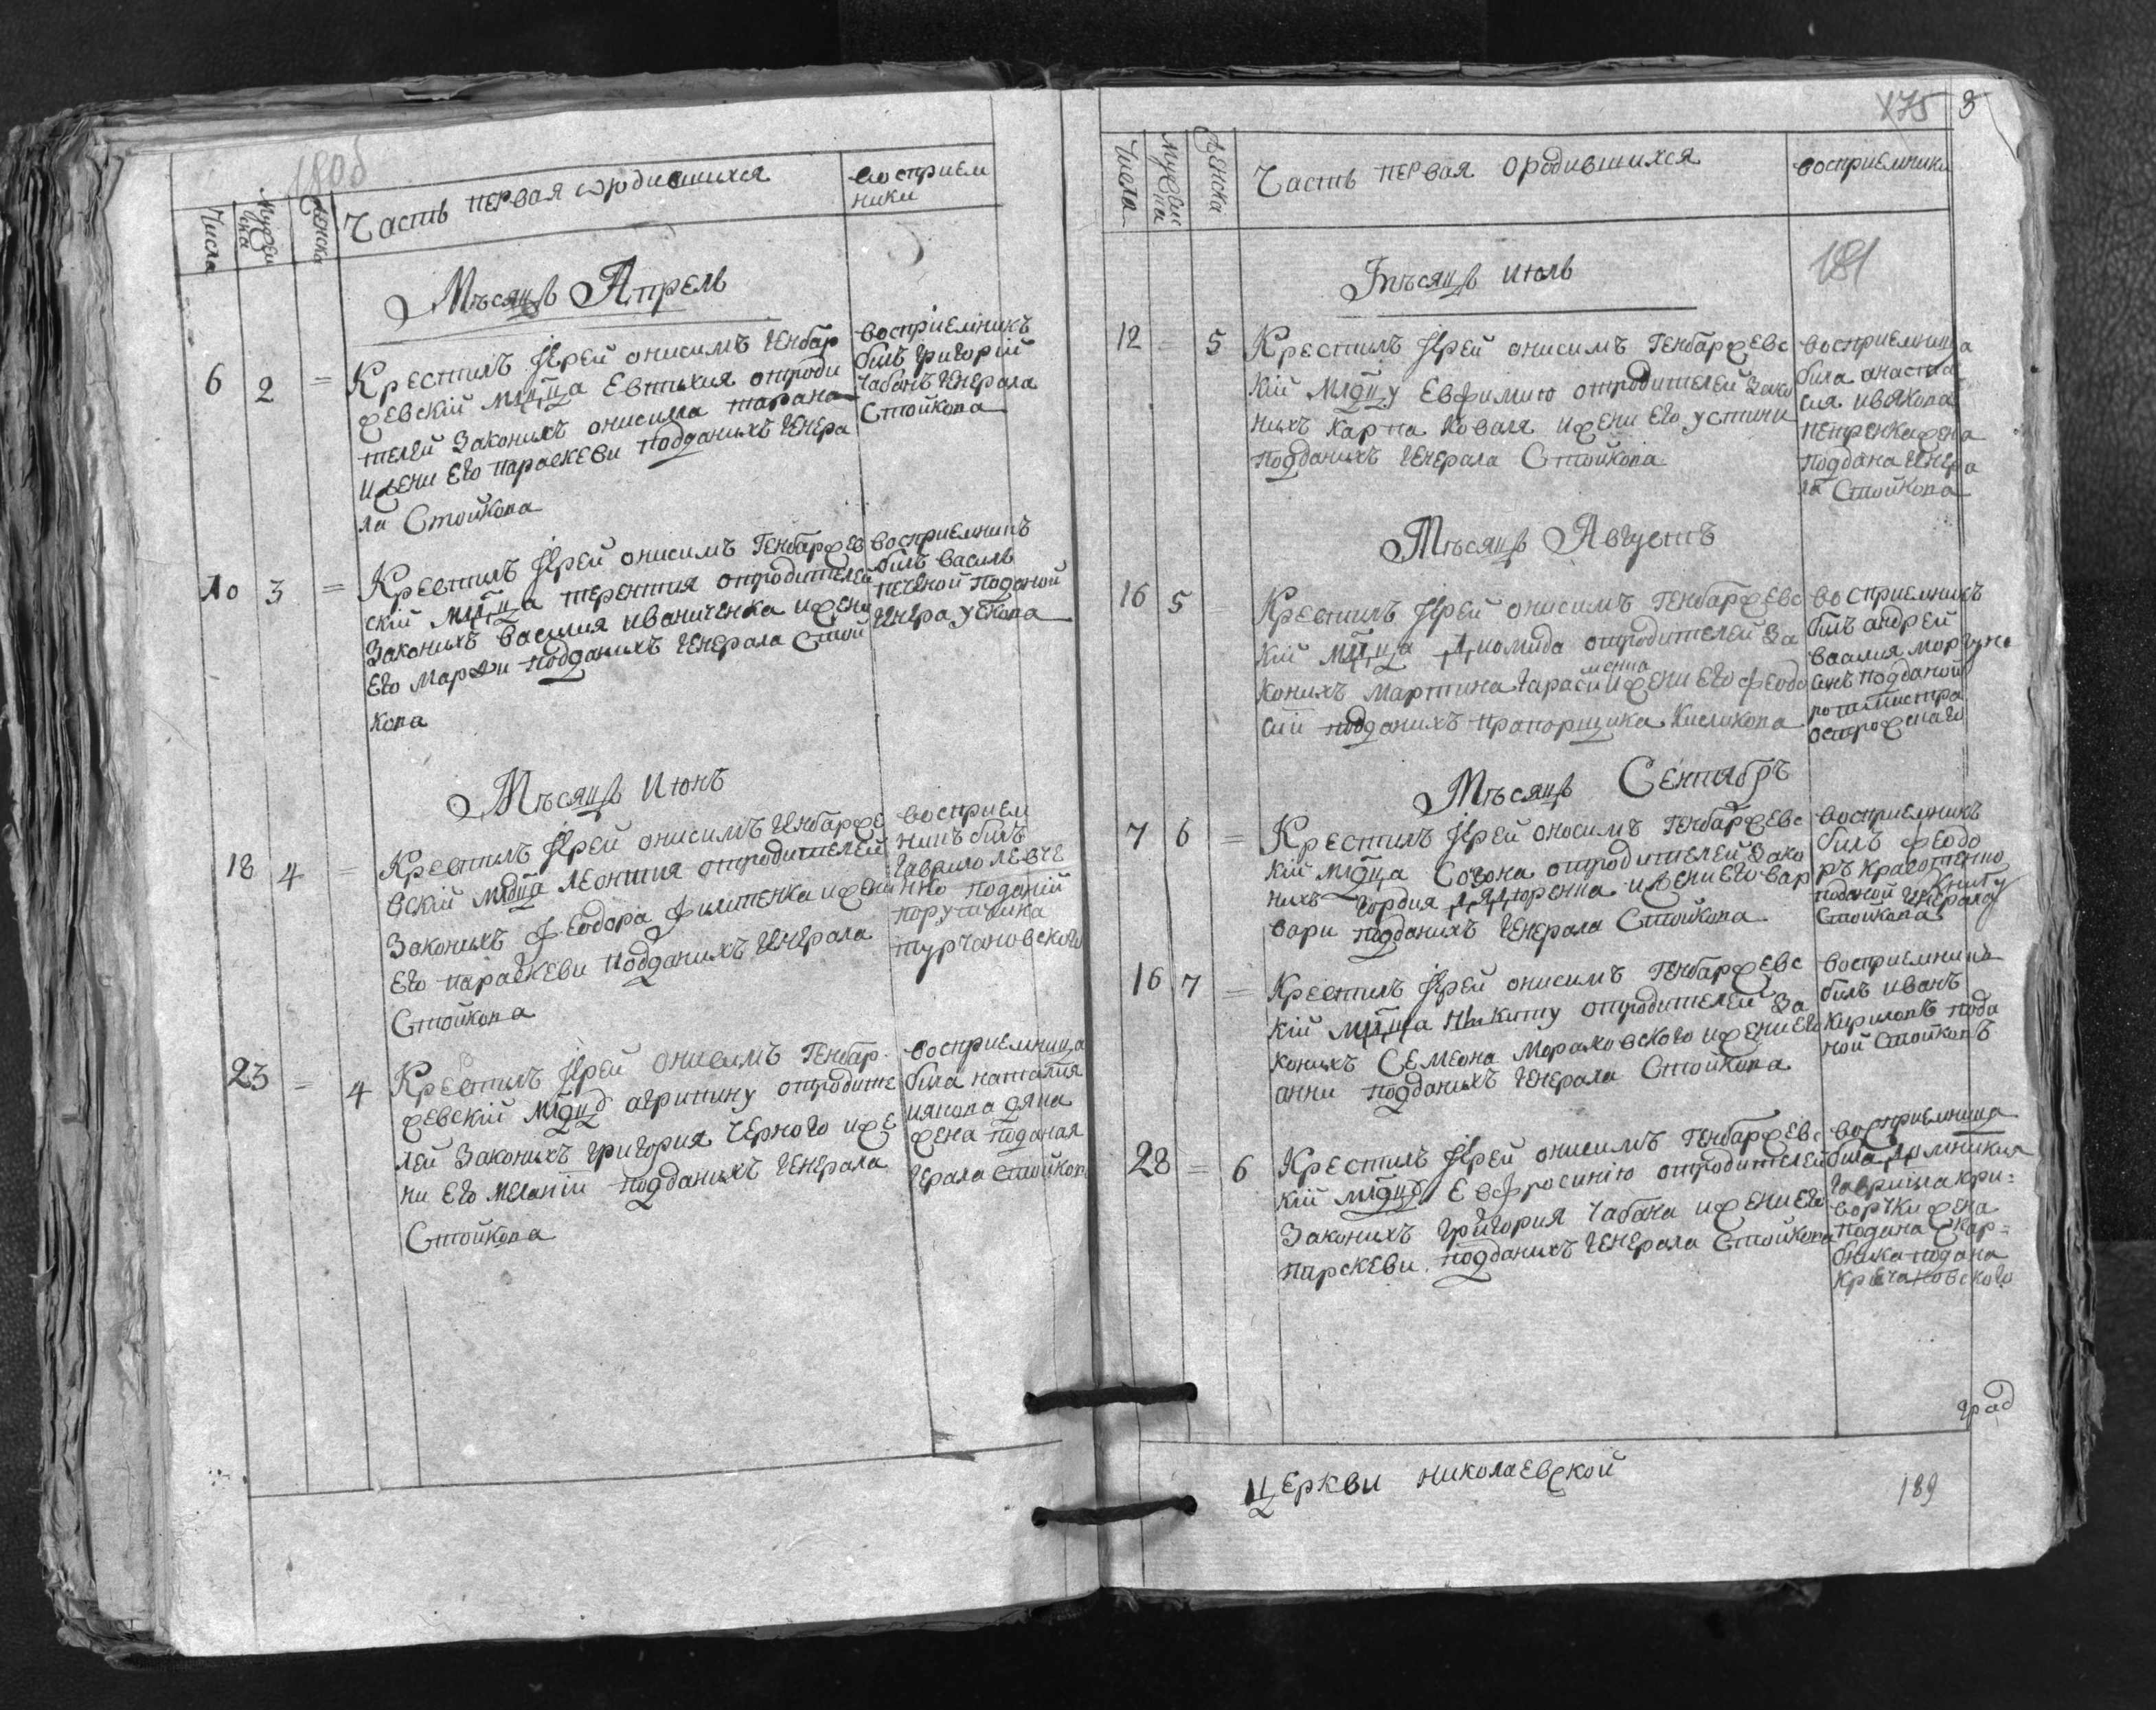 1806
Числа
Мужеска
Женска
Часть первая о родившихся
восприем
ники
Мѣсяцъ Апрель
6 2 =
Крестилъ Іерей онисимъ Генбар
жевскій мл҃нца Евтихия отроди
телей Законихъ онисима тарана
и жени Его параскеви подданихъ Генера
ла Стойкова
восприемникъ
билъ григорій
Чабанъ Генерала
Стойкова
10 3 =
Крестилъ Іерей онисимъ Генбаржев
скій мл҃нца терентия отродителей
Законихъ василия иваниченка и жени
Его Марфи подданихъ Генерала Стой
кова
восприемникъ
билъ василь
подданой
Мѣсяцъ Июнь
18 4 =
Крестилъ Іерей онисимъ Генбарже
вскій мл҃нца леонтия отродителей
Законихъ феодора филипенка и жени
Его параскеви подданихъ Генерала
Стойкова
восприем
никъ билъ
Гаврило левче
нко поданій
поручника
турчановского
23 = 4
Крестилъ Іерей онисимъ Генбар
жевскій мл҃нцу агрипину отродите
лей Законихъ григория Черного и же
ни Его меланіи подданихъ Генерала
Стойкова
восприемница
била наталия
иякова дяка
жена поданая
Герала Стойкова
175 3
Числа
Мужеска
Женска
Часть первая о родившихся
восприемники
Мѣсяцъ июль
181
12 = 5
Крестилъ Іерей онисимъ Генбаржевс
кій мл҃нцу Евфимию отродителей Зако
нихъ Карпа Коваля и жени Его устини
подданихъ Генерала Стойкова
восприемница
била анаста
сия ивякова
петренка жена
поддана Генера
ла Стойкова
Мѣсяцъ Августъ
16 5 =
Крестилъ Іерей онисимъ Генбаржевс
кій мл҃нца Диомида отродителей За
конихъ Мартина Гарасименка и жени Его феодо
сии подданихъ прапорщика Кисликова
восприемникъ
билъ андрей
василия моргуна
синъ подданой
ротмистра
острожскаго
Мѣсяцъ Сентябръ
7 6 =
Крестилъ Іерей оносимъ Генбаржевс
кій мл҃нца Созона отродителей Зако
нихъ Гордия Дядюренка и жени Его вар
вари подданихъ Генерала Стойкова
восприемникъ
билъ феодо
ръ
поданой Генерала
Стойкова
16 7 =
Крестилъ Іерей онисимъ Генбаржевс
кій мл҃нца Никиту отродителей За
конихъ Семеона Мораховского и жени Его
анни подданихъ Генерала Стойкова
восприемникъ
билъ иванъ
Кириловъ пода
ной Стойковъ
28 = 6
Крестилъ Іерей онисимъ Генбаржевс
кій мл҃нцу Евфросинію отродителей
Законихъ григория Чабана и жени Его
парскеви подданихъ Генерала Стойкова
восприемница
била Домникия
Гавриила кри=
ворчки жена
подана Скар=
бника подана
Кречановского
град
Церкви николаевской
189